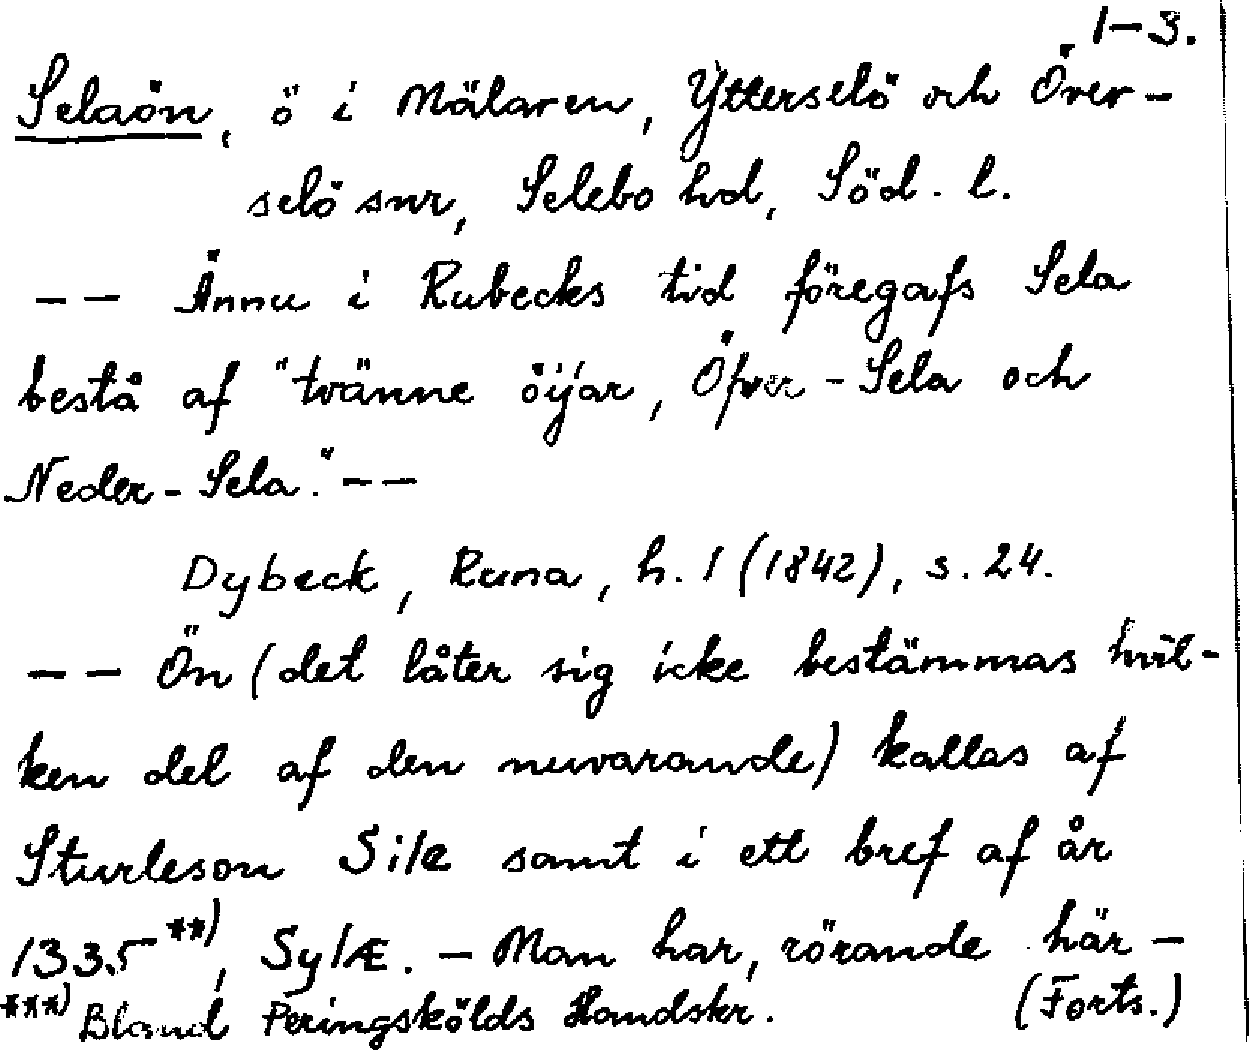 1-3.
Selaön, ö i Mälaren, Ytterselö och Över-
selö snr, Selebo hd, Söd. l.
-- Ännu i Rubecks tid föregafs Sela
bestå af "tvänne öÿar, Öfver-Sela och
Neder-Sela." --
Dybeck, Runa, h. 1 (1842), s. 24.
-- Ön (det låter sig icke bestämmas hvil-
ken del af den nuvarande) kallas af
Sturleson Sile samt i ett bref af år
1335 **), Sylæ. - Man har, rörande här-
***) Bland Peringskölds Handskr. (Forts.)